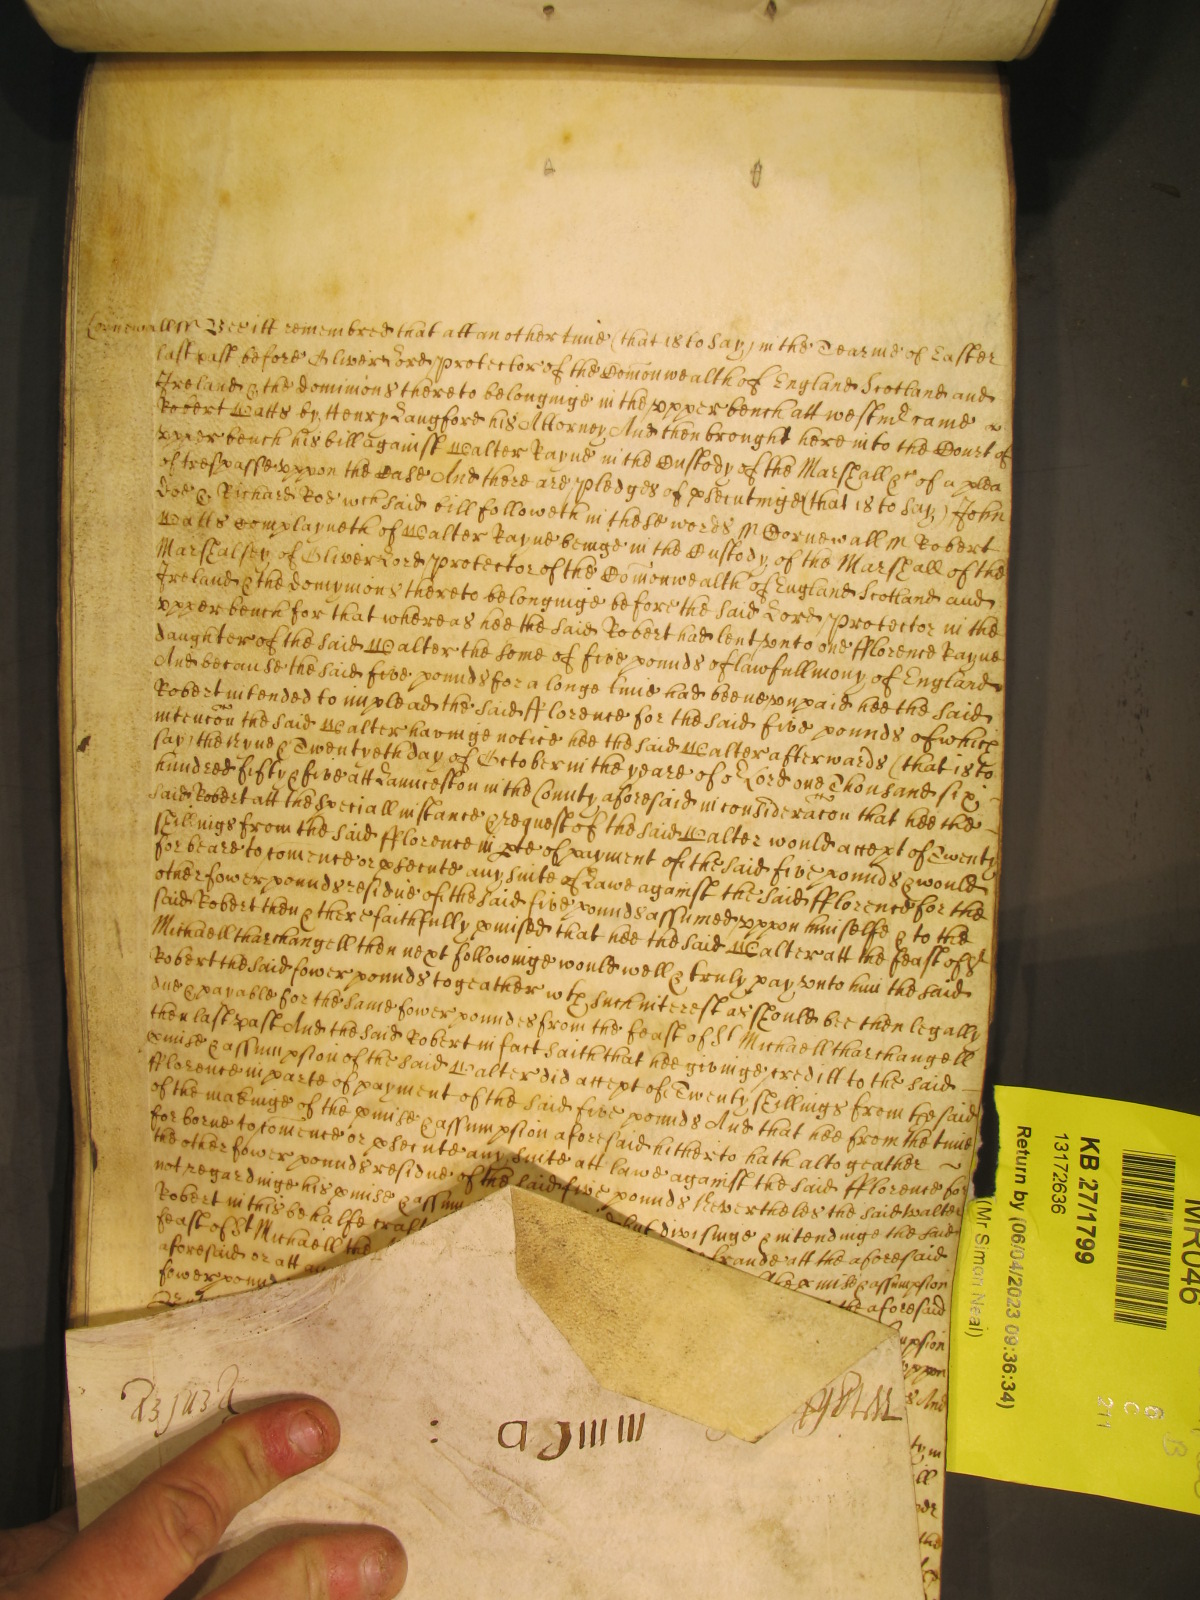 Cornewall ss Bee itt remembred that att another time (that is to say) in the Tearme of Easter
last past before Oliver Lord Protector of the Comonwealth of England Scotland and
Ireland & the dominions thereto belonginge in the upper bench att Westmr came
Robert Watts by Henry Langford his Attorney And then brought here into the Court of
upper bench his bill against Walter Rayne in the Custody of the Marshall &c of a plea
of trespasse uppon the Case And there are pledges of psecutinge (that is to say) John
Doe & Richard Roe wch said bill followeth in these words ss Cornewall ss Robert
Watts Complayneth of Walter Rayne beinge in the Custody of the Marshall of the
Marshalsey of Oliver Lord Protector of the Comonwealth of England Scotland and
Ireland & the domynions thereto belonginge before the said Lord Protector in the
upper bench for that whereas hee the said Robert had lent unto one fflorence Rayne
daughter of the said Walter the some of five pounds of lawfull mony of England
And because the said five pounds for a longe time had beene unpaid hee the said
Robert intended to implead the said fflorence for the said five pounds of which
intencon the said Walter havinge notice hee the said Walter afterwards (that is to
say) the Nyne & Twentyeth day of October in the yeare of or Lord one Thousand six
hundred fifty & five att Launceston in the County aforesaid in consideracon that hee the
said Robert att the speciall instance & request of the said Walter would accept of Twenty
shillings from the said fflorence in pte of payment of the said five pounds & would
forbeare to comence or psecute any suite of Lawe against the said fflorence for the
other fower pounds residue of the said five pounds assumed uppon himselfe & to the
said Robert then & there faithfully pmised that hee the said Walter att the feast of St
Michaell tharchangell then next followinge would well & truly pay unto him the said
Robert the said fower pounds togeather wth such interest as should bee then legally
due & payable for the same fower poundes from the feast of St Michaell tharchangell
then last past And the said Robert in fact saith that hee givinge creditt to the said
pmise & assumpsion of the said Walter did accept of Twenty shillings from the said
fflorence in parte of payment of the said five pounds And that hee from the time
of the makinge of the pmise & assumpsion aforesaid hitherto hath altogeather
forborne to comence or psecute any suite att lawe against the said fflorence for
the other fower pounds residue of the said five pounds Nevertheles the said Walter
not regardinge his pmise & assum but divisinge & intendinge the said
Robert in this behalfe craft fraude att the aforesaid
feast of St Michaell the the pmise & assumpsion
aforesaid or att an the aforesaid
fower pound mpsion
uppon
And
KB 27/1799
13172636
Return by (06/04/2023 09:36:34)
(Mr Simon Neal)
MR046